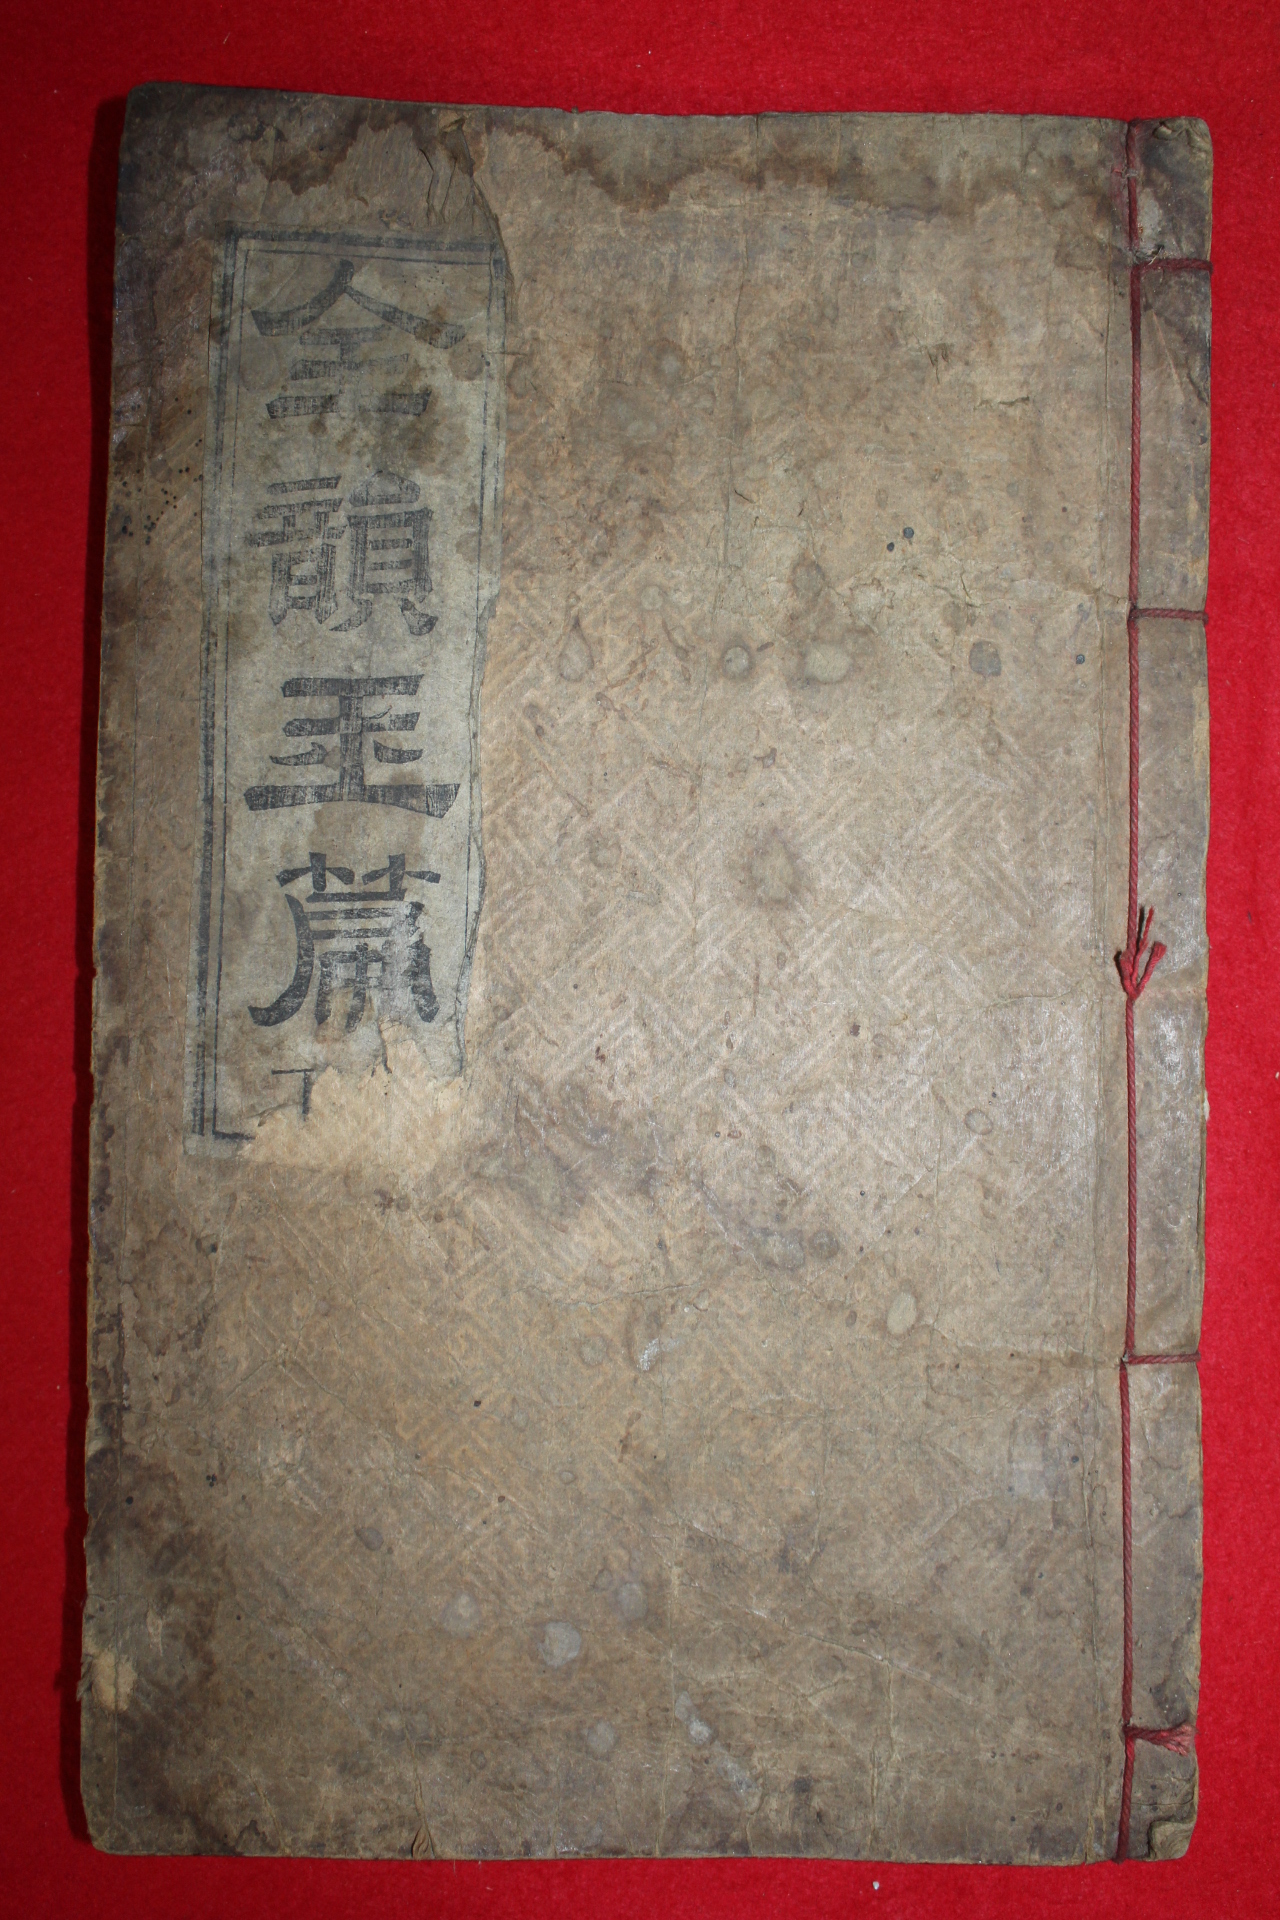 全韻玉篇
下